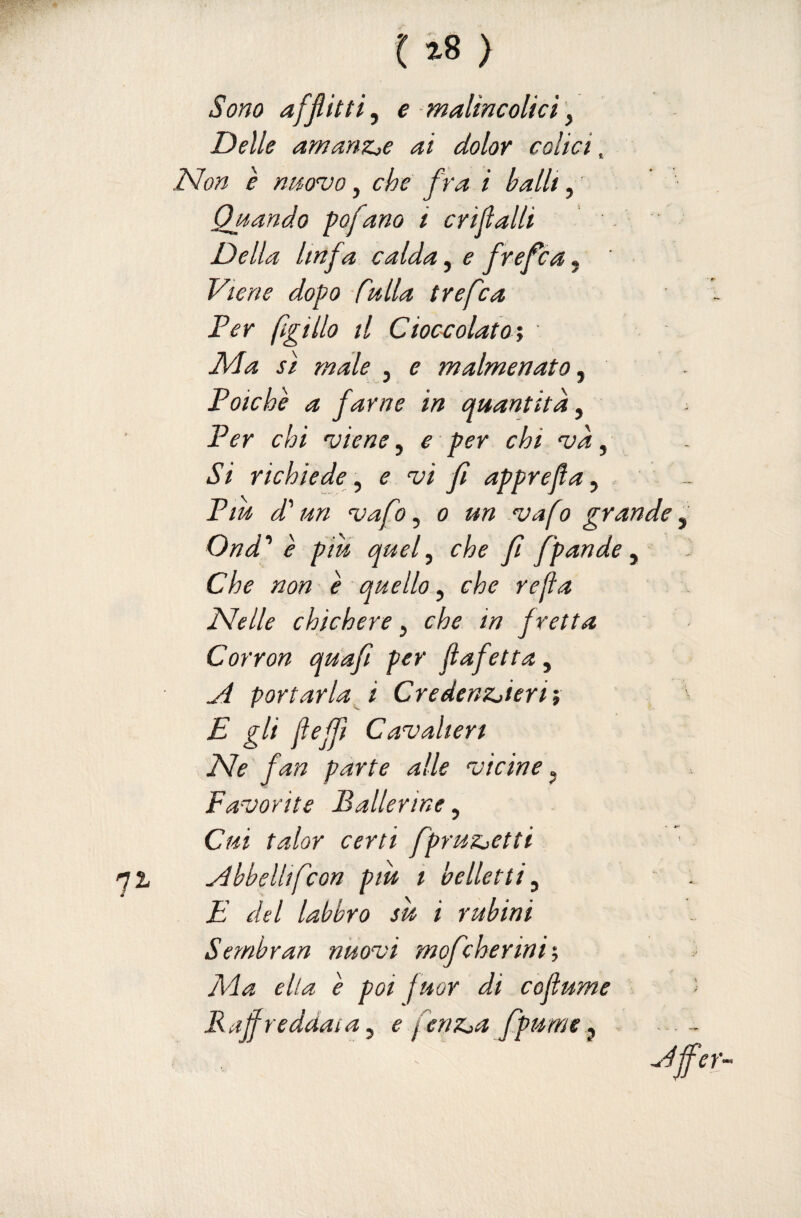 ( 28 )
Sono afflitti, e malincolici,
Delle amanze ai dolor colici.
Non è nuovo, che fra i balli,
Quando poſano i criſtalli
Della linfa calda, e freſca,
Viene dopo ſulla treſca
Per ſigillo il Cioccolato;
Ma sì male, e malmenato,
Poichè a farne in quantità,
Per chi viene, e per chi và,
Si richiede, e vi ſi appreſta,
Più d' un vaſo, o un vaſo grande,
Ond' è più quel, che ſi ſpande,
Che non è quello, che reſta
Nelle chichere, che in fretta
Corron quaſi per ſtafetta,
A portarla i Credenzieri;
E gli ſteſſi Cavalieri
Ne fan parte alle vicine,
Favorite Ballerine,
Cui talor certi ſpruzetti
72 Abbelliſcon più i belletti,
E del labbro sù i rubini
Sembran nuovi moſcherini;
Ma ella è poi fuor di coſtume
Raffreddata, e ſenza ſpume,
Affer-